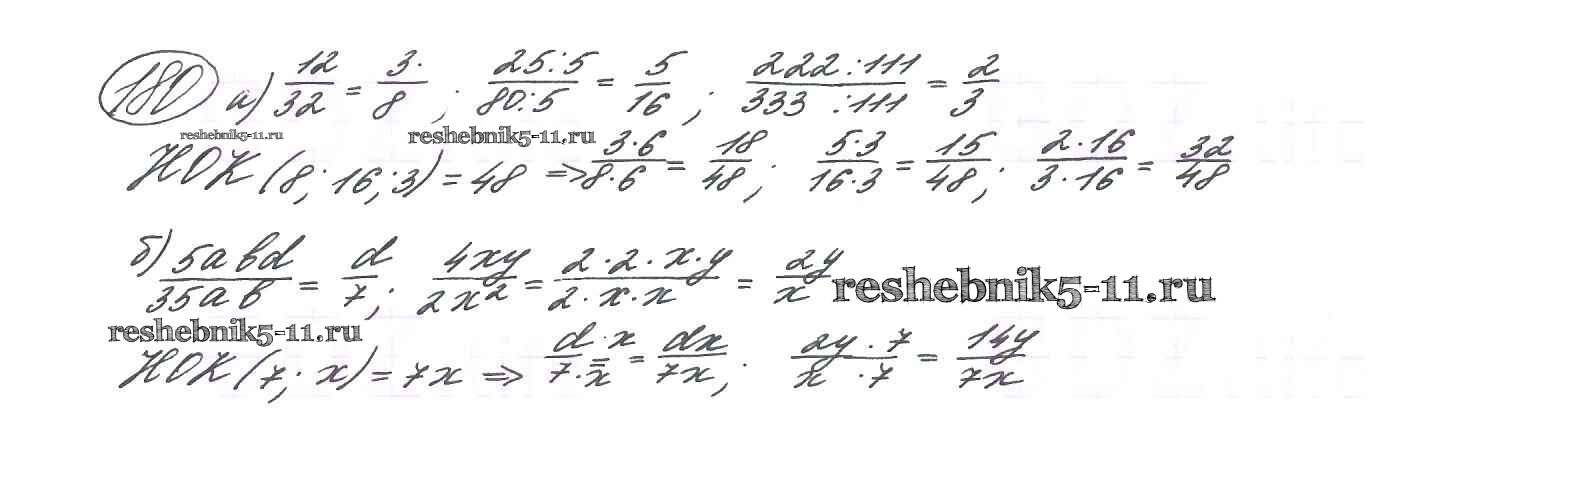 180 а) 12/32 = 3/8 ; 25:5/80:5 = 5/16 ; 222:111/333:111 = 2/3
reshebnik5-11.ru reshebnik5-11.ru
НОК (8; 16; 3) = 48 => 3·6/8·6 = 18/48 ; 5·3/16·3 = 15/48 ; 2·16/3·16 = 32/48
б) 5abd/35ab = d/7 ; 4xy/2x² = 2·2·x·y/2·x·x = 2y/x
reshebnik5-11.ru
reshebnik5-11.ru
НОК (7; x) = 7x => d·x/7·x = dx/7x ; 2y·7/x·7 = 14y/7x